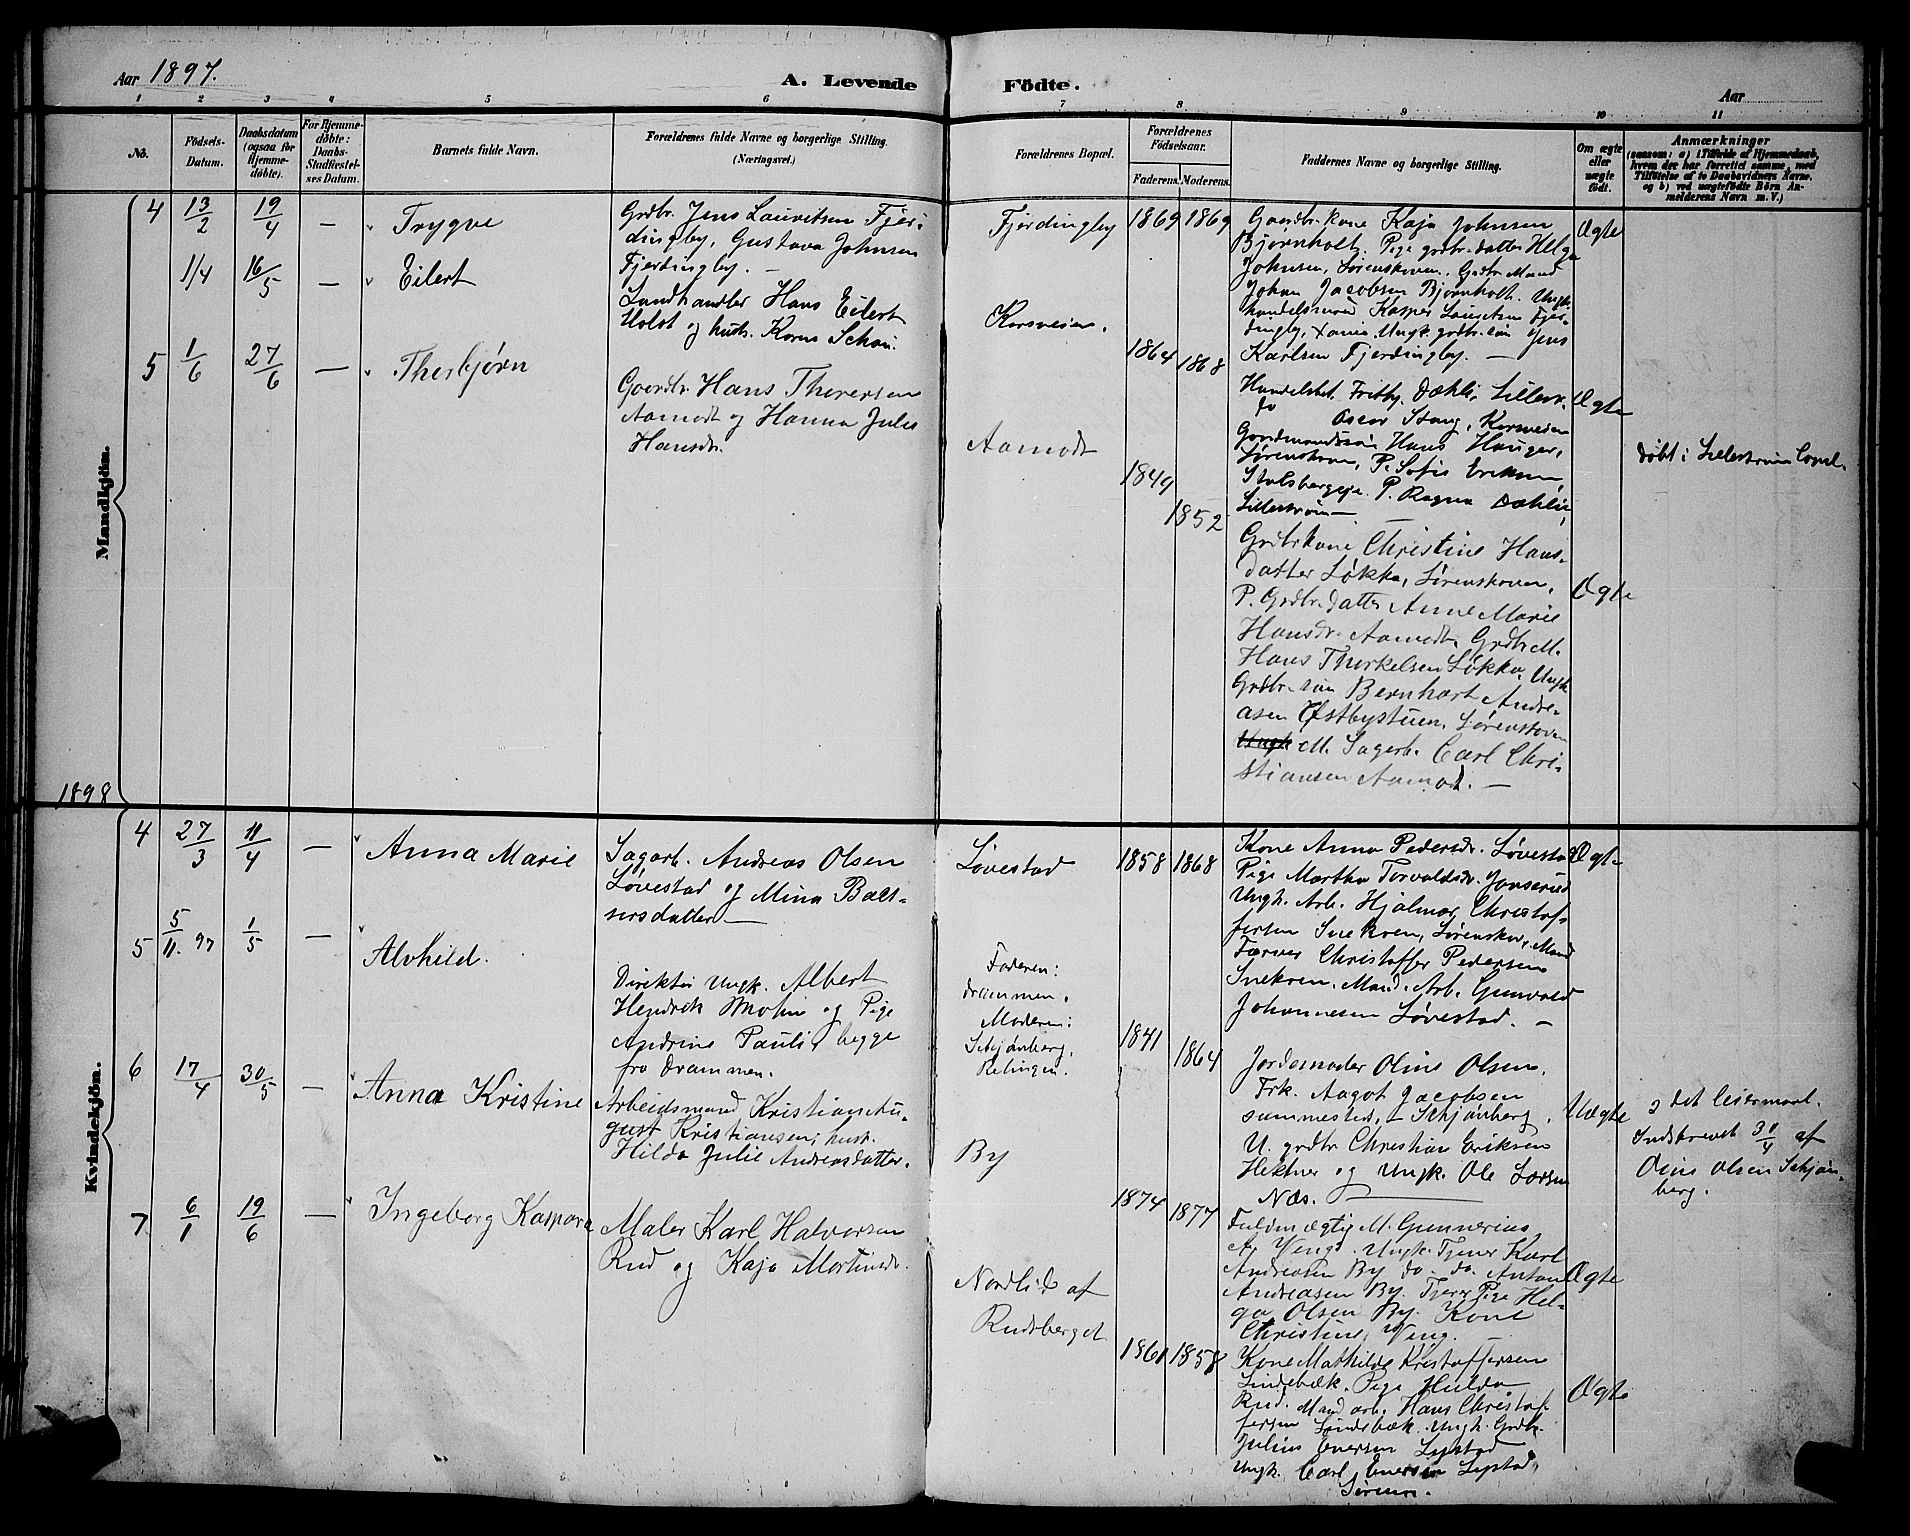 Aar 1897.
A. Levende Födte.
Aar
1 2 3 4 5 6 7 8 9 10 11
No.
Födsels-
Datum.
Daabsdatum
(ogsaa for
Hjemme-
döbte).
For Hjemme-
döbte:
Daabs-
Stadfæstel-
ses Datum.
Barnets fulde Navn.
Forældrenes fulde Navne og borgerlige Stilling.
(Næringsvei.)
Forældrenes Bopæl.
Forældrenes
Födselsaar.
Faderens. Moderens.
Faddernes Navne og borgerlige Stilling.
Om ægte
eller
uægte
födt.
Anmærkninger
(saasom: a) i Tilfælde af Hjemmedaab,
hvem der har forrettet samme, med
Tilföielse af to Daabsvidners Navne.
og b) ved uægtefödte Börn An-
melderens Navn m. V.)
Mandkjön.
4 13/2 19/4 — Trygve
Grdbr. Jens Lauritsen Fjer-
dingby, Gustava Johnsen
Fjerdingby. —
Fjerdingby 1869 1869
Gaardbr.kone Kaja Johnsen
Bjørnholt, Pige grdbr.datter Helga
Johnsen, Lørenskoven. Grdbr. Mand
Johan Jacobsen Bjørnholt. Ungk.
handelsmand Kasper Lauritsen Fjer-
dingby, Xania Ungk. grdbr. søn Jens
Karlsen Fjerdingby. —
Ægte
1/4 16/5 — Eilert
Landhandler Hans Eilert
Holst og hustr. Karen Schou.
Korsveien.
1864 1868
Handelsbet. Frithj. Dæhli, Lillestr.
do Oscar Stang, Korsveien
Gaardmandssøn Hans Hauger,
Lørenskoven, P. Sofie Eriksen,
Stalsbergeje. P. Ragna Dæhlie,
Lillestrøm —
Ægte
døbt i Lillestrøm Capel.
5 1/6 27/6 — Thorbjørn
Gaardbr. Hans Thoresen
Aamodt og Hanna Julie
Hansdr.
Aamodt
1849 1852
Grdbrkone Christine Hans-
datter Løkka, Lørenskoven,
P. Grdbr. datter Anne Marie
Hansdr. Aamodt, Grdbr. M.
Hans Thorkelsen Løkka, Ungk.
Grdbr. søn Bernhart Andre-
asen Østbystuen, Lørenskoven
Ungk M. Sagarb. Carl Chri-
stiansen Aamodt. —
Ægte
1898
Kvindekjön.
4 27/3 11/4 — Anna Marie
Sagarb. Andreas Olsen
Løvestad og Mina Balt-
sersdatter —
Løvestad 1858 1868
Kone Anna Pedersdr. Løvestad
Pige Martha Torvaldsdr. Jonserud
Ungk. Arb. Hjalmar Christof-
fersen Snekren, Lørenskov, Mand
Farver Christoffer Pedersen
Snekren. Mand. Arb. Gunvald
Johannesen Løvestad. —
Ægte
5 5/11. 97 1/5 — Alvhild.
Direktør Ungk. Albert
Hendrik Mohn og Pige
Andrine Pauli, begge
fra Drammen.
Faderen:
Drammen.
Moderen:
Schjønberg,
Relingen.
1841 1864
Jordemoder Oline Olsen.
Frk. Aagot Jacobsen
sammesteds, Schjønberg.
U. grdbr. Christian Eriksen
Hektner og Ungk. Ole Larsen
Næs. —
Uægte
2 det leiermaal.
Indskrevet 30/4 af
Oline Olsen Schjøn-
berg.
6 17/4 30/5 — Anna Kristine
Arbeidsmand Kristian Au-
gust Kristiansen; hust.
Hilda Julie Andreasdatter.
By
1874 1877
Fuldmægtig M. Gunnerius
A. Weng. Ungk. Tjener Karl
Andreasen By do - do. Anton
Andreasen By. Tjen. Pige Hel-
ga Olsen By. Kone
Christine Weng.
Ægte
7 6/1 19/6 — Ingeborg Kaspara
Maler Karl Halvorsen
Rud og Kaja Martinsdr.
Nordlid af
Rudsberget
1861 1858
Kone Mathilde Kristoffersen
Lindebæk. Pige Hulda
Rud. Mand arb. Hans Christof-
fersen Lindebæk. Ungk. Grdbr.
Julius Eversen Lystad
Ungk. Carl Eversen Lystad,
Ægte